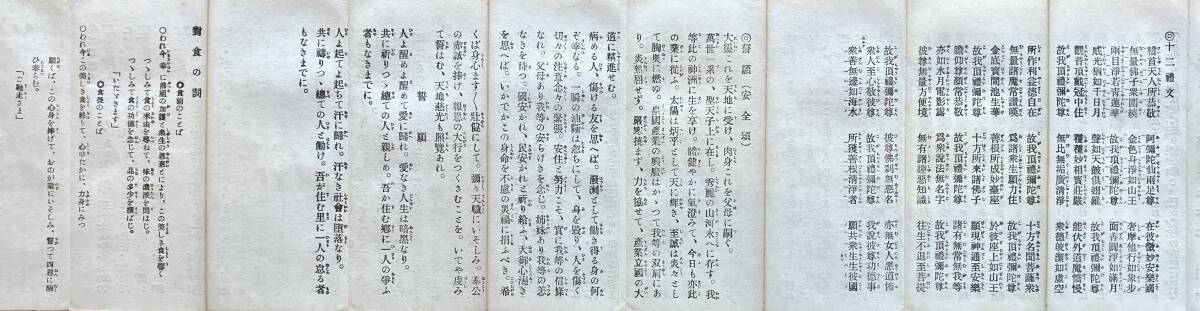 ◎十二禮文
稽首天人所恭敬　阿彌陀仙兩足尊　在彼微妙安樂國
無量佛子衆圍繞　金色身淨如山王　奢摩他行如象步
兩目淨若青蓮華　故我頂禮彌陀尊　面善圓淨如滿月
威光猶如千日月　聲如天鼓俱翅羅　故我頂禮彌陀尊
觀音頂戴冠中住　種種妙相寶莊嚴　能伏外道魔憍慢
故我頂禮彌陀尊　無比無垢廣清淨　衆德皎潔如虛空
所作利益得自在　故我頂禮彌陀尊　十方名聞菩薩衆
無量諸魔常讃嘆　爲諸衆生願力住　故我頂禮彌陀尊
金底寶間池生華　善根所成妙臺座　於彼座上如山王
故我頂禮彌陀尊　十方所來諸佛子　顯現神通至安樂
瞻仰尊顏常恭敬　故我頂禮彌陀尊　諸有無常無我等
亦如水月電影露　爲衆說法無名字　故我頂禮彌陀尊
彼尊無量方便境　無有諸趣惡知識　往生不退至菩提
故我頂禮彌陀尊　彼尊佛刹無惡名　亦無女人惡道怖
衆人至心敬彼尊　故我頂禮彌陀尊　我說彼尊功德事
衆善無邊如海水　所獲善根清淨者　願共衆生生彼國
◎誓願（安全頌）
大靈これを天地に受け、肉身これを父母に嗣ぐ。
萬世一系の、聖天子上に在し。秀麗の山河永へに存す。我
等此の神洲に生を享け。體健やかに氣澄みて、今日も亦此
の業に從ふ。太陽は炳乎として天に輝き、至誠は炎々とし
て胸奥に燃ゆ。皇國產業の興廢はかゝつて我等の双肩にあ
り。炎熱屈せず。嚴寒挑まず、力を協せて、產業立國の大
道に精進せむ。
病める人、傷ける友を思へば。潑溂として働き得る身の何
ぞ幸なる。一瞬の油斷、忽ちにして、身を毀り、人を傷く
切々の注意念々の緊張。安住、努力こそ、實に我等の信條
なれ。父母あり我等の安らけきを念じ。姉妹あり我等の恙
なきを待つ。國安かれ、民安かれと祈り給ふ、大御心渴き
を思へば。いかでかこの身命を不慮の災禍に捐ふべき。希
くば身心ます〱壯健にして。彌々天職にいそしみ。奉公
の赤誠を捧げ、報恩の大行をつくさむことを、いでや虔み
て誓はむ、天地慈光も照覽あれ。
誓　願
人よ醒めよ醒めて愛に歸れ。愛なき人生は暗黑なり。
共に祈りつゝ總ての人と親しめ。吾が住む鄕に一人の爭ふ
者もなきまでに。
人よ起てよ起ちて汗に歸れ。汗なき社會は墮落なり。
共に禱りつゝ總ての人と働け。吾が住む里に一人の怠る者
もなきまでに。
對食の詞
◎食前のことば
◎われ今、幸に佛祖の加護と衆生の恩惠とにより、この美しき食を饗く
つゝしみて食の來由を尋ねて、味の濃淡を問はじ。
つゝしみて食の功德を念じて、品の多少を撰ばじ。
「いたゞきます」
◎食後のことば
◎われ今、この美しき食を終りて、心ゆたかに、力身にみつ
願くば、この心身を捧げて、おのが業にいそしみ、誓つて四恩に酬
ひ奉らむ。
「ご馳走さま」